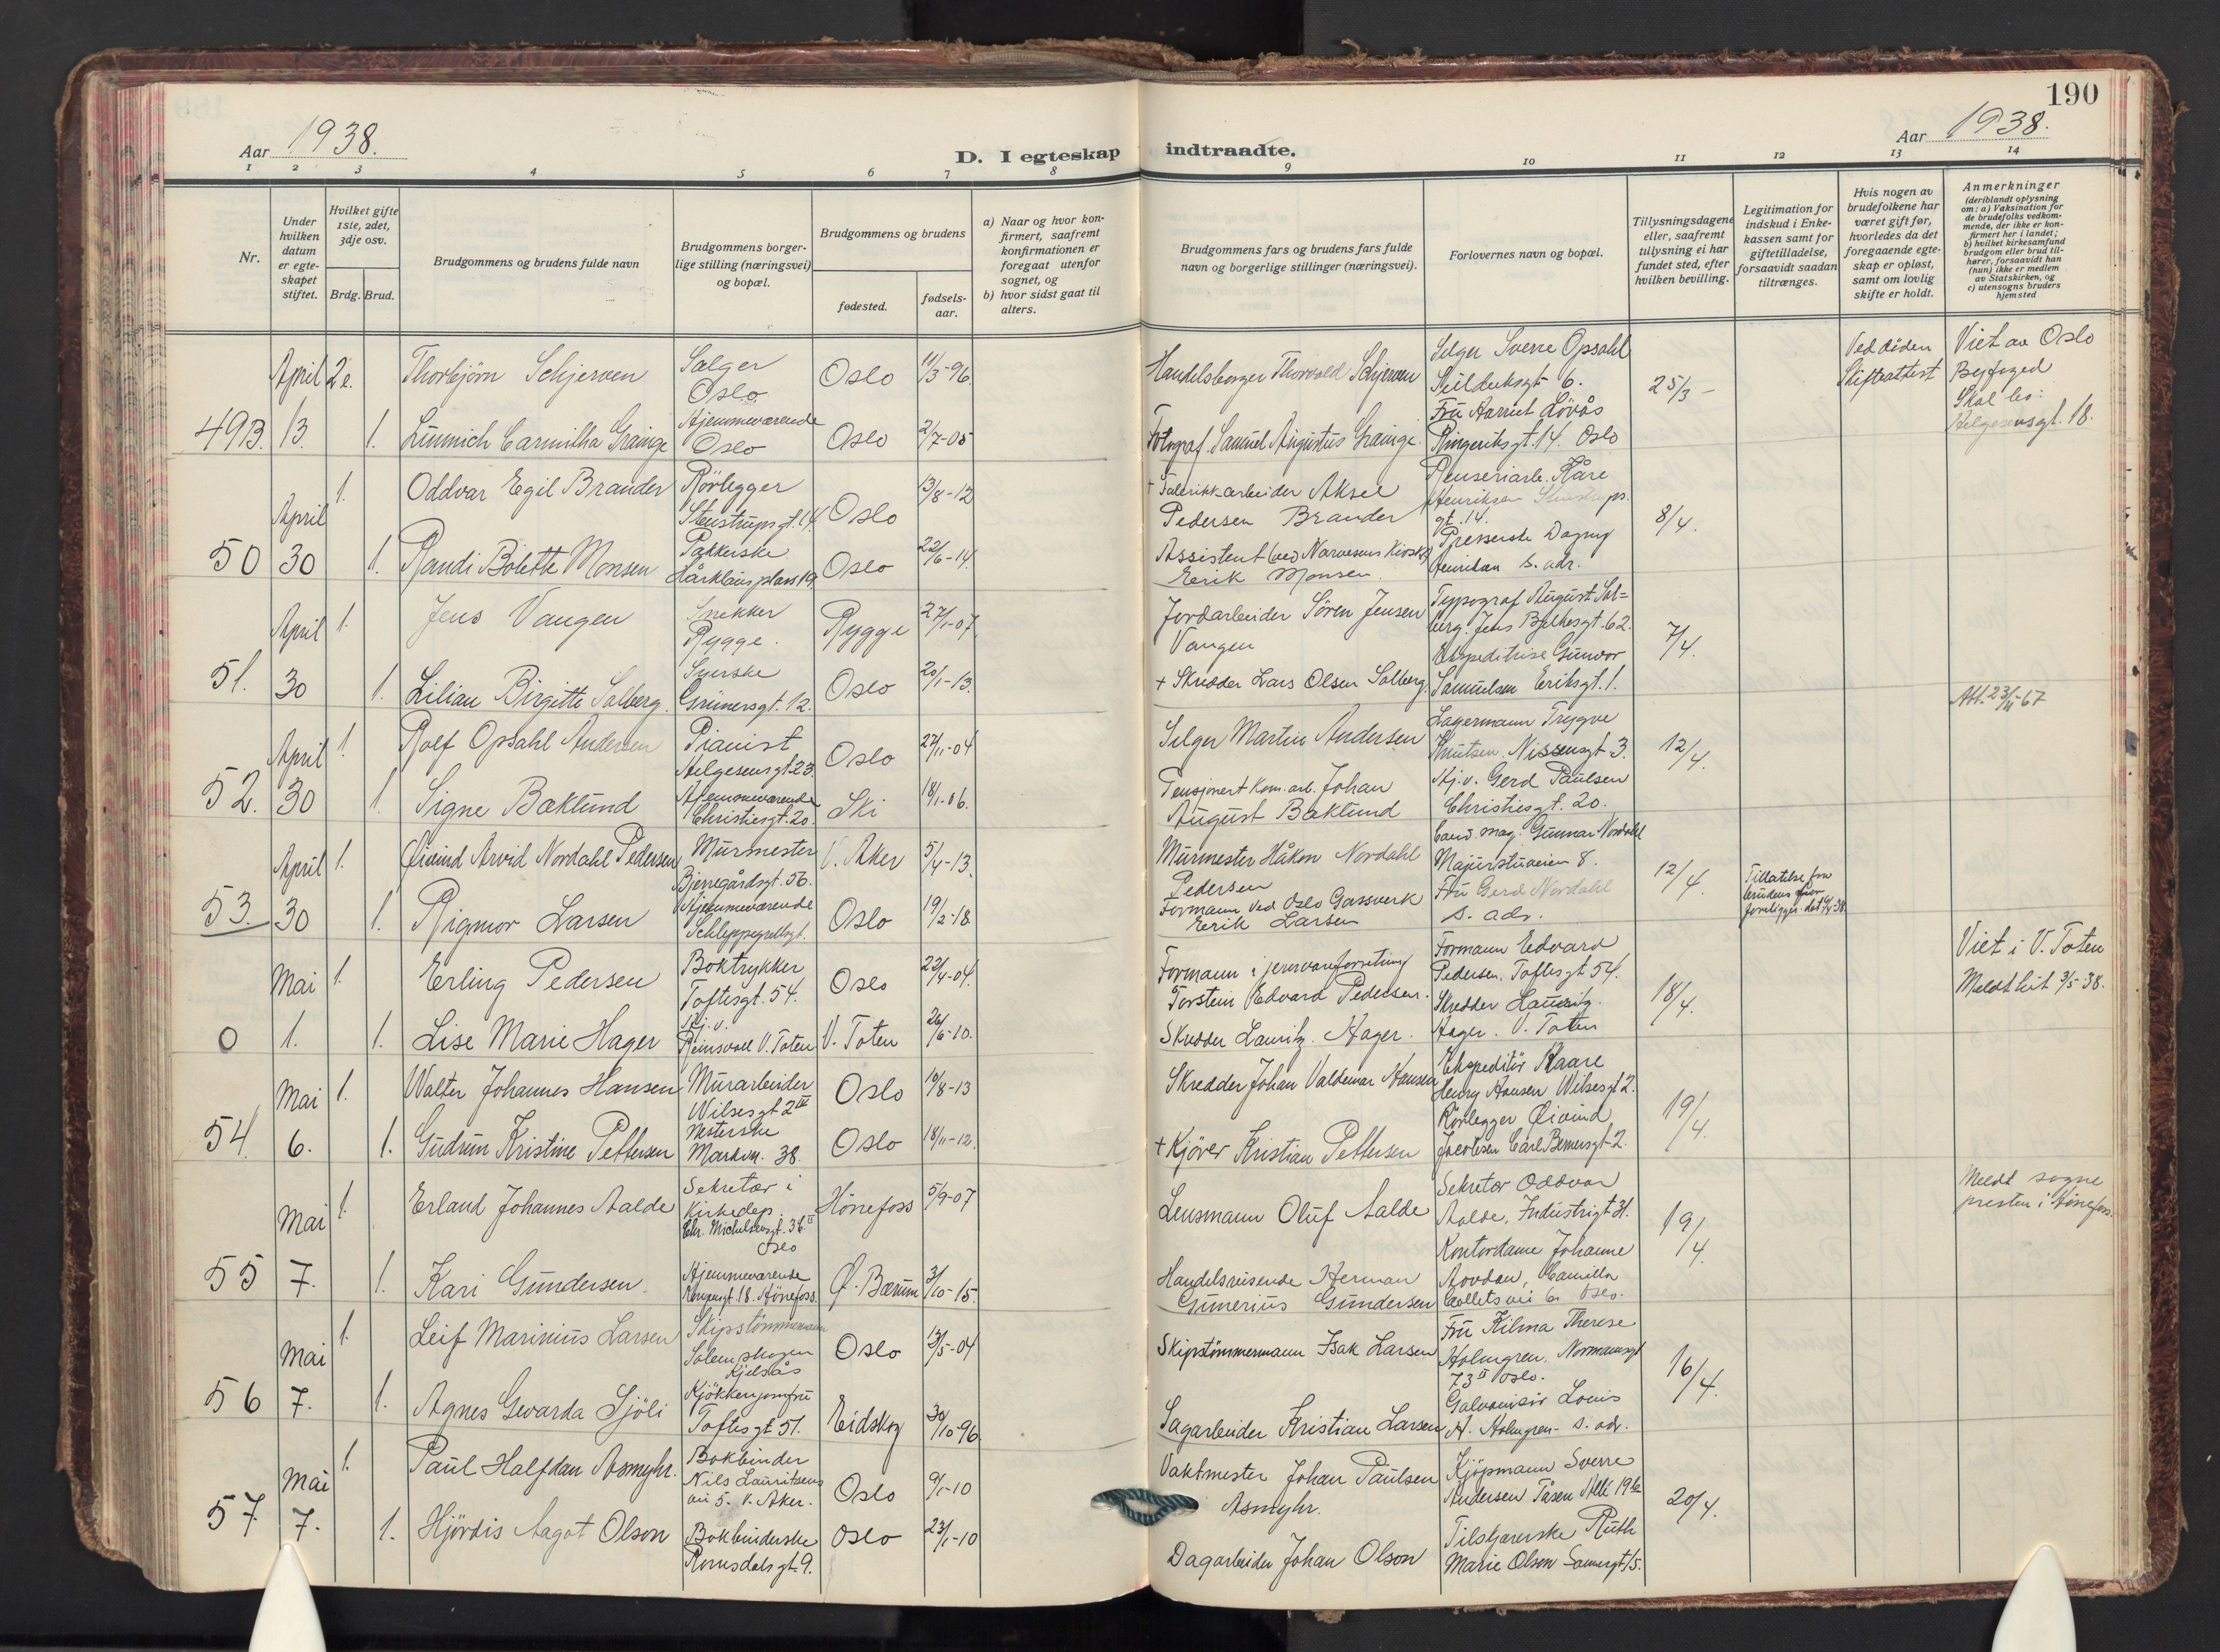 190
Aar 1938.
D. I egteskap indtraadte.
Aar 1938.
1 2 3 4 5 6 7 8 9 10 11 12 13 14
Nr.
Under hvilken datum er egteskapet stiftet.
Hvilket gifte 1ste, 2det, 3dje osv.
Brdg. Brud.
Brudgommens og brudens fulde navn
Brudgommens borgerlige stilling (næringsvei) og bopæl.
Brudgommens og brudens
fødested.
fødsels-aar.
a) Naar og hvor konfirmert, saafremt konfirmationen er foregaat utenfor sognet, og
b) hvor sidst gaat til alters.
Brudgommens fars og brudens fars fulde navn og borgerlige stillinger (næringsvei).
Forlovernes navn og bopæl.
Tillysningsdagene eller, saafremt tillysning ei har fundet sted, efter hvilken bevilling.
Legitimation for indskud i Enkekassen samt for giftetilladelse, forsaavidt saadan tiltrænges.
Hvis nogen av brudefolkene har været gift før, hvorledes da det foregaaende egteskap er opløst, samt om lovlig skifte er holdt.
Anmerkninger (deriblandt oplysning om: a) Vaksination for de brudefolks vedkommende, der ikke er konfirmert her i landet; b) hvilket kirkesamfund brudgom eller brud tilhører, forsaavidt han (hun) ikke er medlem av Statskirken, og c) utensogns bruders hjemsted
April 2e. Thorbjørn Schjerven
Selger
Oslo
Oslo 11/3-96.
Handelsborger Thorvold Schjerven
Selger Sverre Opsahl
6.
25/3 -
Ved døden
Skifteattest
Viet av Oslo
Byfoged
Skal bo:
Helgesensgt. 18.
49B. 13. 1.
Hjemmeværende
Oslo
Oslo 2/7-05
Fotograf. Samuel Augustus Grainge.
Fru Harriet Løvås
Ringeriksgt. 14. Oslo
April 1. Oddvar Egil Brander
Rørlegger
Stenstrupsgt. 14.
Oslo 13/8-12
+ Fabrikkarbeider Aksel
Pedersen Brander
Renseriarb. Kåre
Henriksen
gt. 14.
8/4.
50 30 1. Randi Bolette Monsen
Pakkerske
Hårklaus plass 19
Oslo 22/6-14.
Assistent (ved Narvesens Kiosk)
Eerik Monsen.
Presserske Dagny
Henriksen s. adr.
April 1. Jens Vangen
Snekker
Rygge.
Rygge 27/1-07
Jordarbeider Søren Jensen
Vangen
Typograf August Sol=
berg. Jens Bjelkesgt. 62.
7/4.
51. 30 1. Lilian Birgitte Solberg.
Syerske
Grünersgt. 12.
Oslo 20/1-13.
+ Skredder Lars Olsen Solberg.
Ekspeditrise Gunvor
Samuelsen Eriksgt. 1.
April 1. Rolf Opsahl Andersen
Pianist
Helgesensgt 23.
Oslo 27/11-04
Selger Martin Andersen
Lagermann Trygve
Knutsen. Nissensgt 3.
12/4.
Att. 23/-67
52. 30 1. Signe Bæklund
Hjemmeværende
Christiesgt. 20.
Ski 18/1-06.
Pensjonert Kom. arb. Johan
August Bæklund
Hj.v. Gerd Paulsen
Christiesgt. 20.
April 1. Øivind Arvid Nordahl Pedersen
Murmester
Bjerregårdsgt. 56.
V. Aker 5/4-13.
Murmester Håkon Nordahl
Pedersen
Cand. mag. Gunnar Nordahl
Majorstuveien 8.
12/4
Tillatelse fra
brudens
foreligger
53. 30 1. Rigmor Larsen
Hjemmeværende
Schleppegrellsgt.
Oslo 19/2-18
Formann ved Oslo Gassverk
Eerik Larsen
Fru Gerd Nordahl
s. adr.
Mai 1. Erling Pedersen
Boktrykker
Toftesgt. 54.
Oslo 22/4-04.
Formann i jernvareforretning
Torstein Edvard Pedersen.
Formann Edvard
Pedersen. Toftesgt 54.
18/4.
Viet i V. Toten
Meldt hit 3/5-38.
0 1. 1. Lise Marie Hager
Hj.v.
Reinsvoll V. Toten
V. Toten 26/6-10.
Skredder Lauritz. Hager.
Skredder Lauritz.
Hager. V. Toten
Mai 1. Walter Johannes Hansen
Murarbeider
Wilsesgt 2 IV
Oslo 10/8-13
Skredder Johan Valdemar Hansen
Ekspeditør Kaare
Henry Hansen Wilsesgt 2.
19/4.
54. 6. 1. Gudrun Kristine Pettersen
Markvn. 38.
Oslo 18/11-12.
+ Kjører Kristian Pettersen
Rørlegger Øivind
Jacobsen Carl Bernersgt 2.
Mai 1. Erland Johannes Aalde
Sekretær i
Kirkedep.
Chr. Michelsensgt. 36 II
Oslo
Hønefoss 5/9-07
Lensmann Oluf Aalde
Sekretær Oddvar
Aalde, Industrigt 31.
19/4
Meldt sogne
presten i Hønefoss.
55 7. 1. Kari Gundersen.
Hjemmeværende
18. Hønefoss.
Ø. Bærum 3/10-15.
Handelsreisende Herman
Gunerius Gundersen
Kontordame Johanne
Hovden, Camilla
Colletts vei 6 Oslo.
Mai 1. Leif Marinius Larsen
Skipstømmermann
Solemskogen
Kjelsås
Oslo 13/5-04
Skipstømmermann Isak Larsen
Fru Hilma Therese
Holmgren. Normannsgt
73 II Oslo.
16/4.
56 7. 1. Agnes Gevarda Sjøli
Kjøkkenjomfru
Toftesgt 51.
Eidskog 30/10-96
Sagarbeider Kristian Larsen
Galvanisør Louis
H. Holmgren - s. adr.
Mai 1. Paul Halfdan Asmyhr.
Bokbinder
Nils Lauritsens
vei 5. V. Aker.
Oslo 9/1-10
Vaktmester Johan Paulsen
Asmyhr.
Kjøpmann Sverre
Andersen Tåsen Allé 19
20/4.
57 7. 1. Hjørdis Aagot Olson
Bokbinderske
Romsdalsgt. 9.
Oslo 23/1-10
Dagarbeider Johan Olson
Tilskjærerske Ruth
Marie Olson